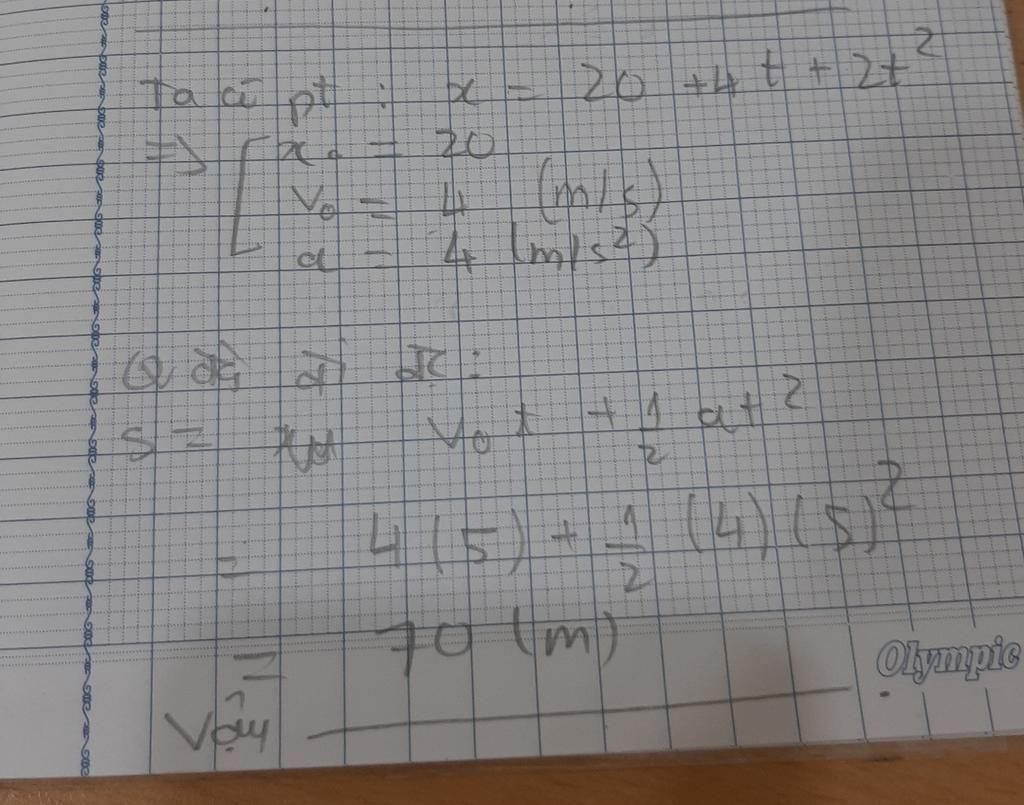 Ta có pt : x = 20 + 4t + 2t²
=> [ x₀ = 20
v₀ = 4 (m/s)
a = 4 (m/s²)
Q
S = v₀t + 1/2 at²
= 4(5) + 1/2 (4)(5)²
= 70 (m)
Vậy
Olympic